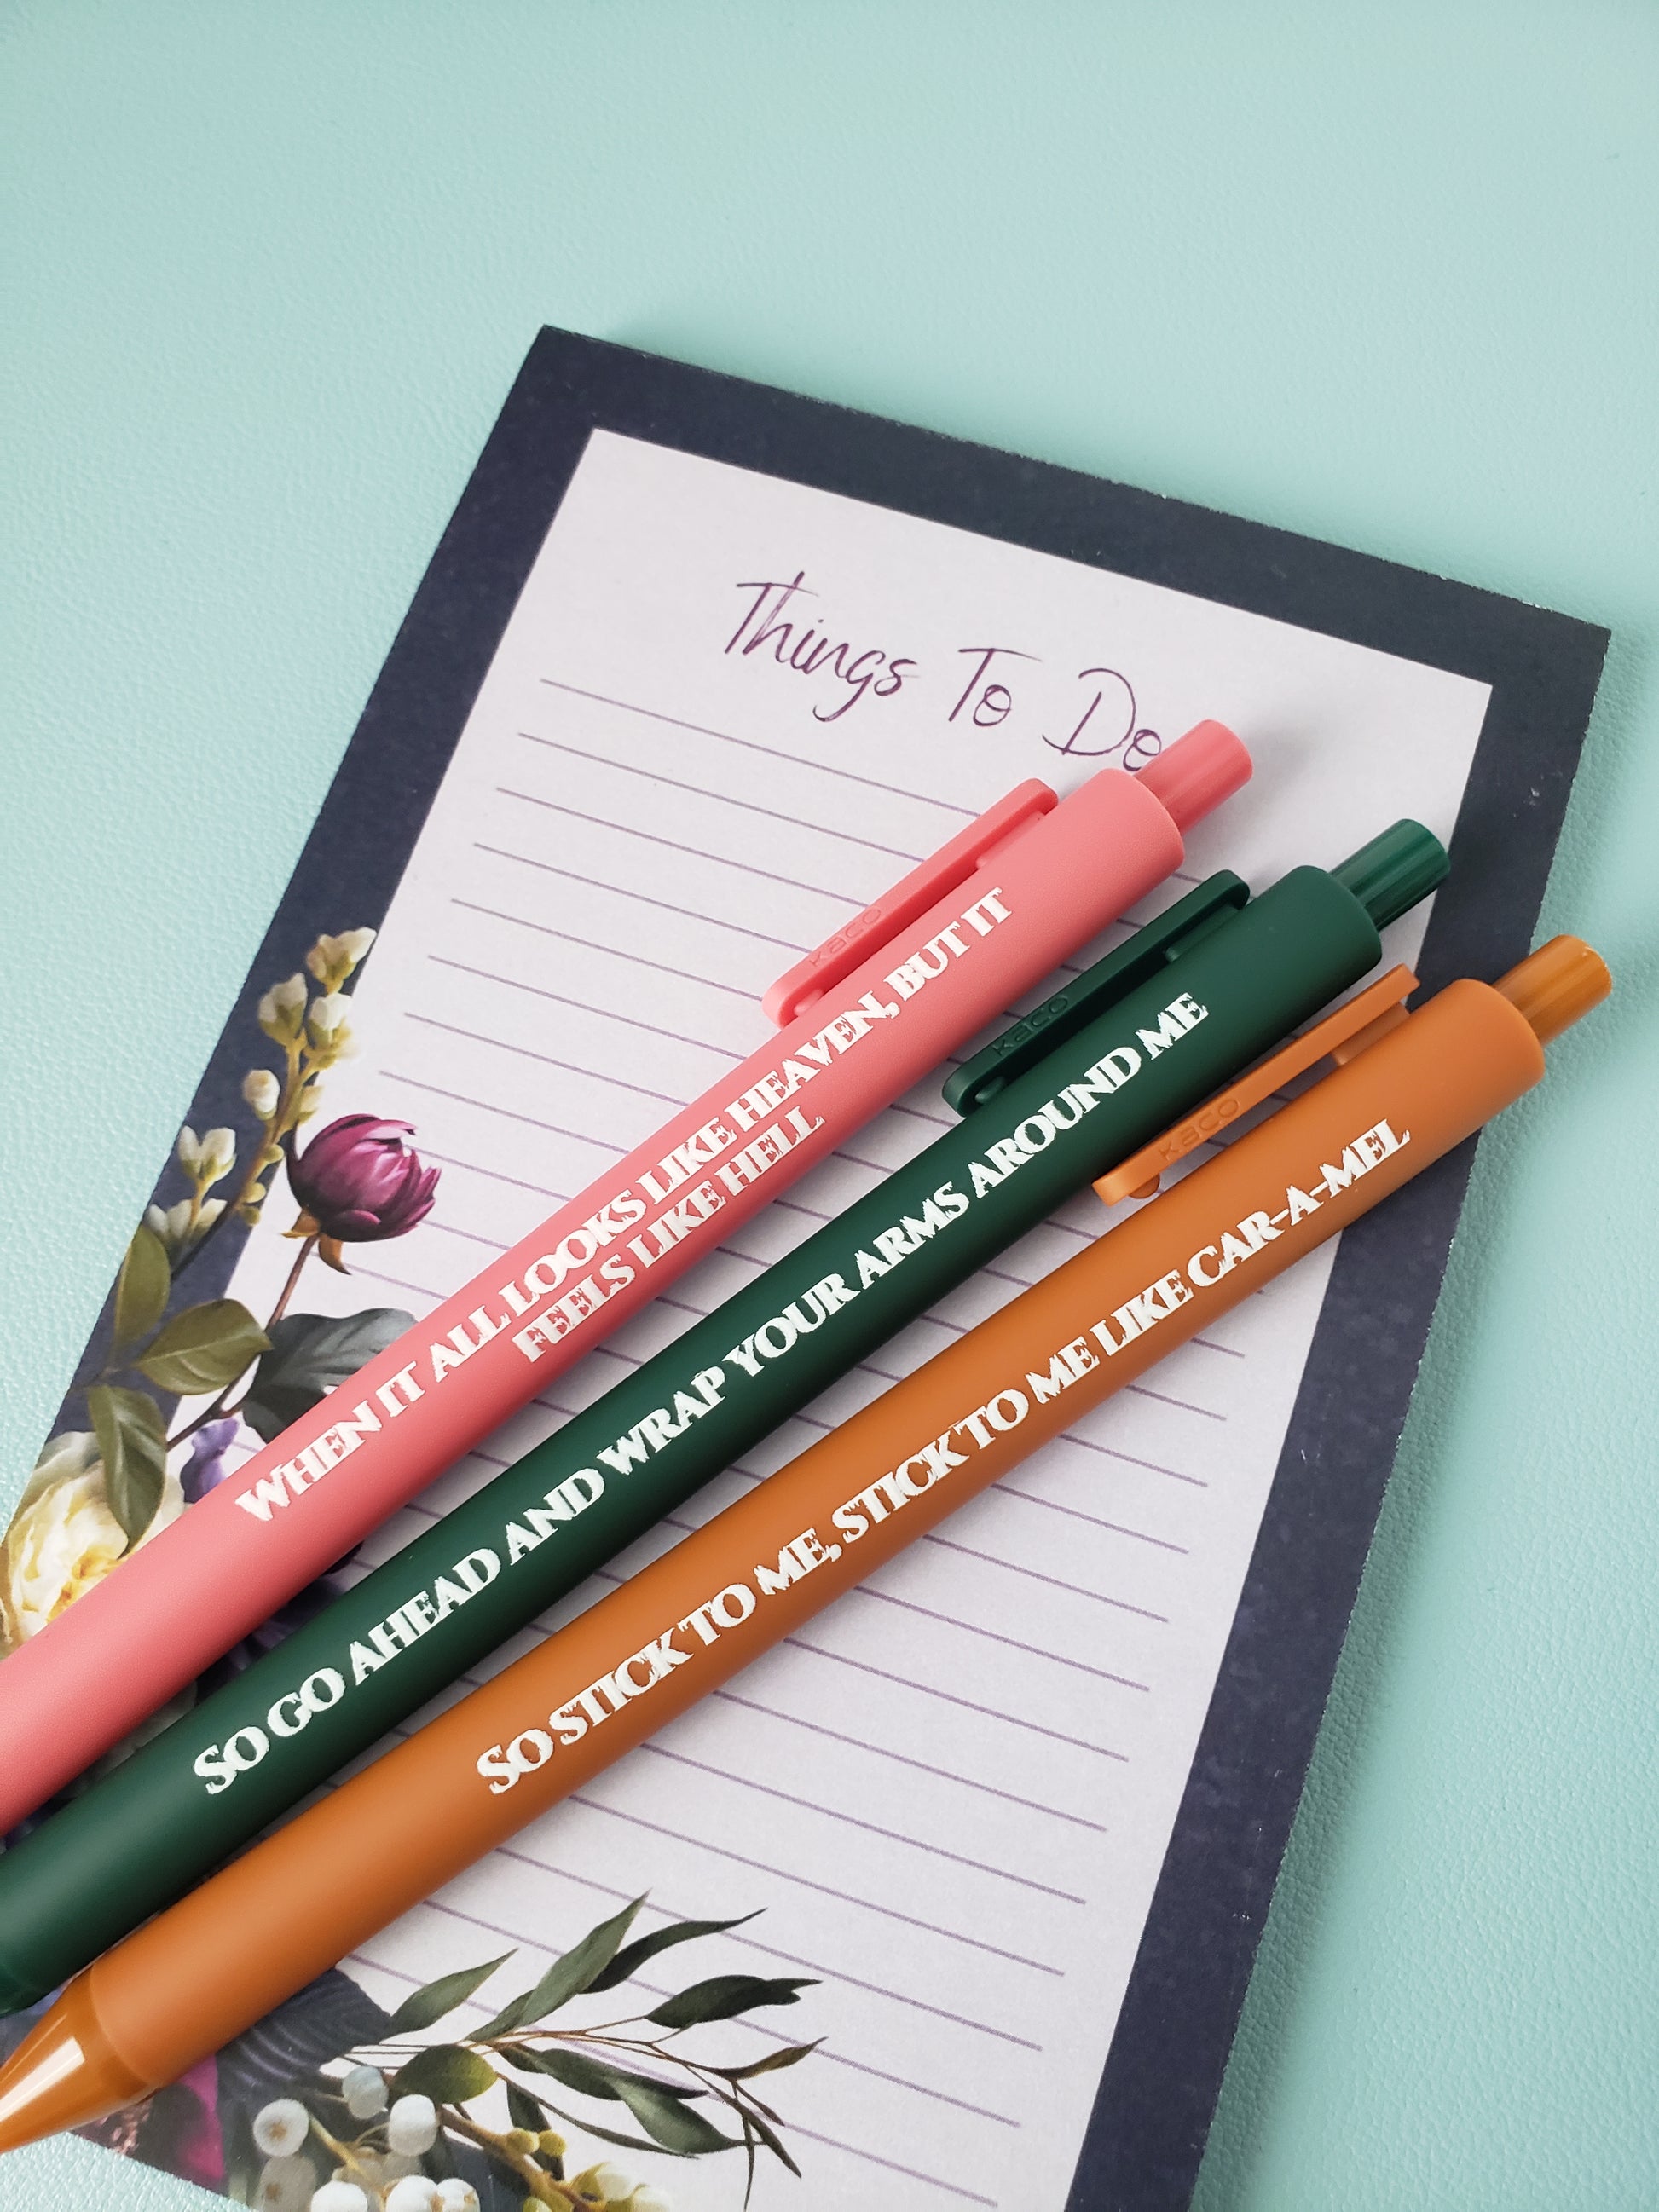 Things To Do
kaco
WHEN IT ALL LOOKS LIKE HEAVEN, BUT IT
FEELS LIKE HELL
kaco
SO GO AHEAD AND WRAP YOUR ARMS AROUND ME
kaco
SO STICK TO ME, STICK TO ME LIKE CAR-A-MEL